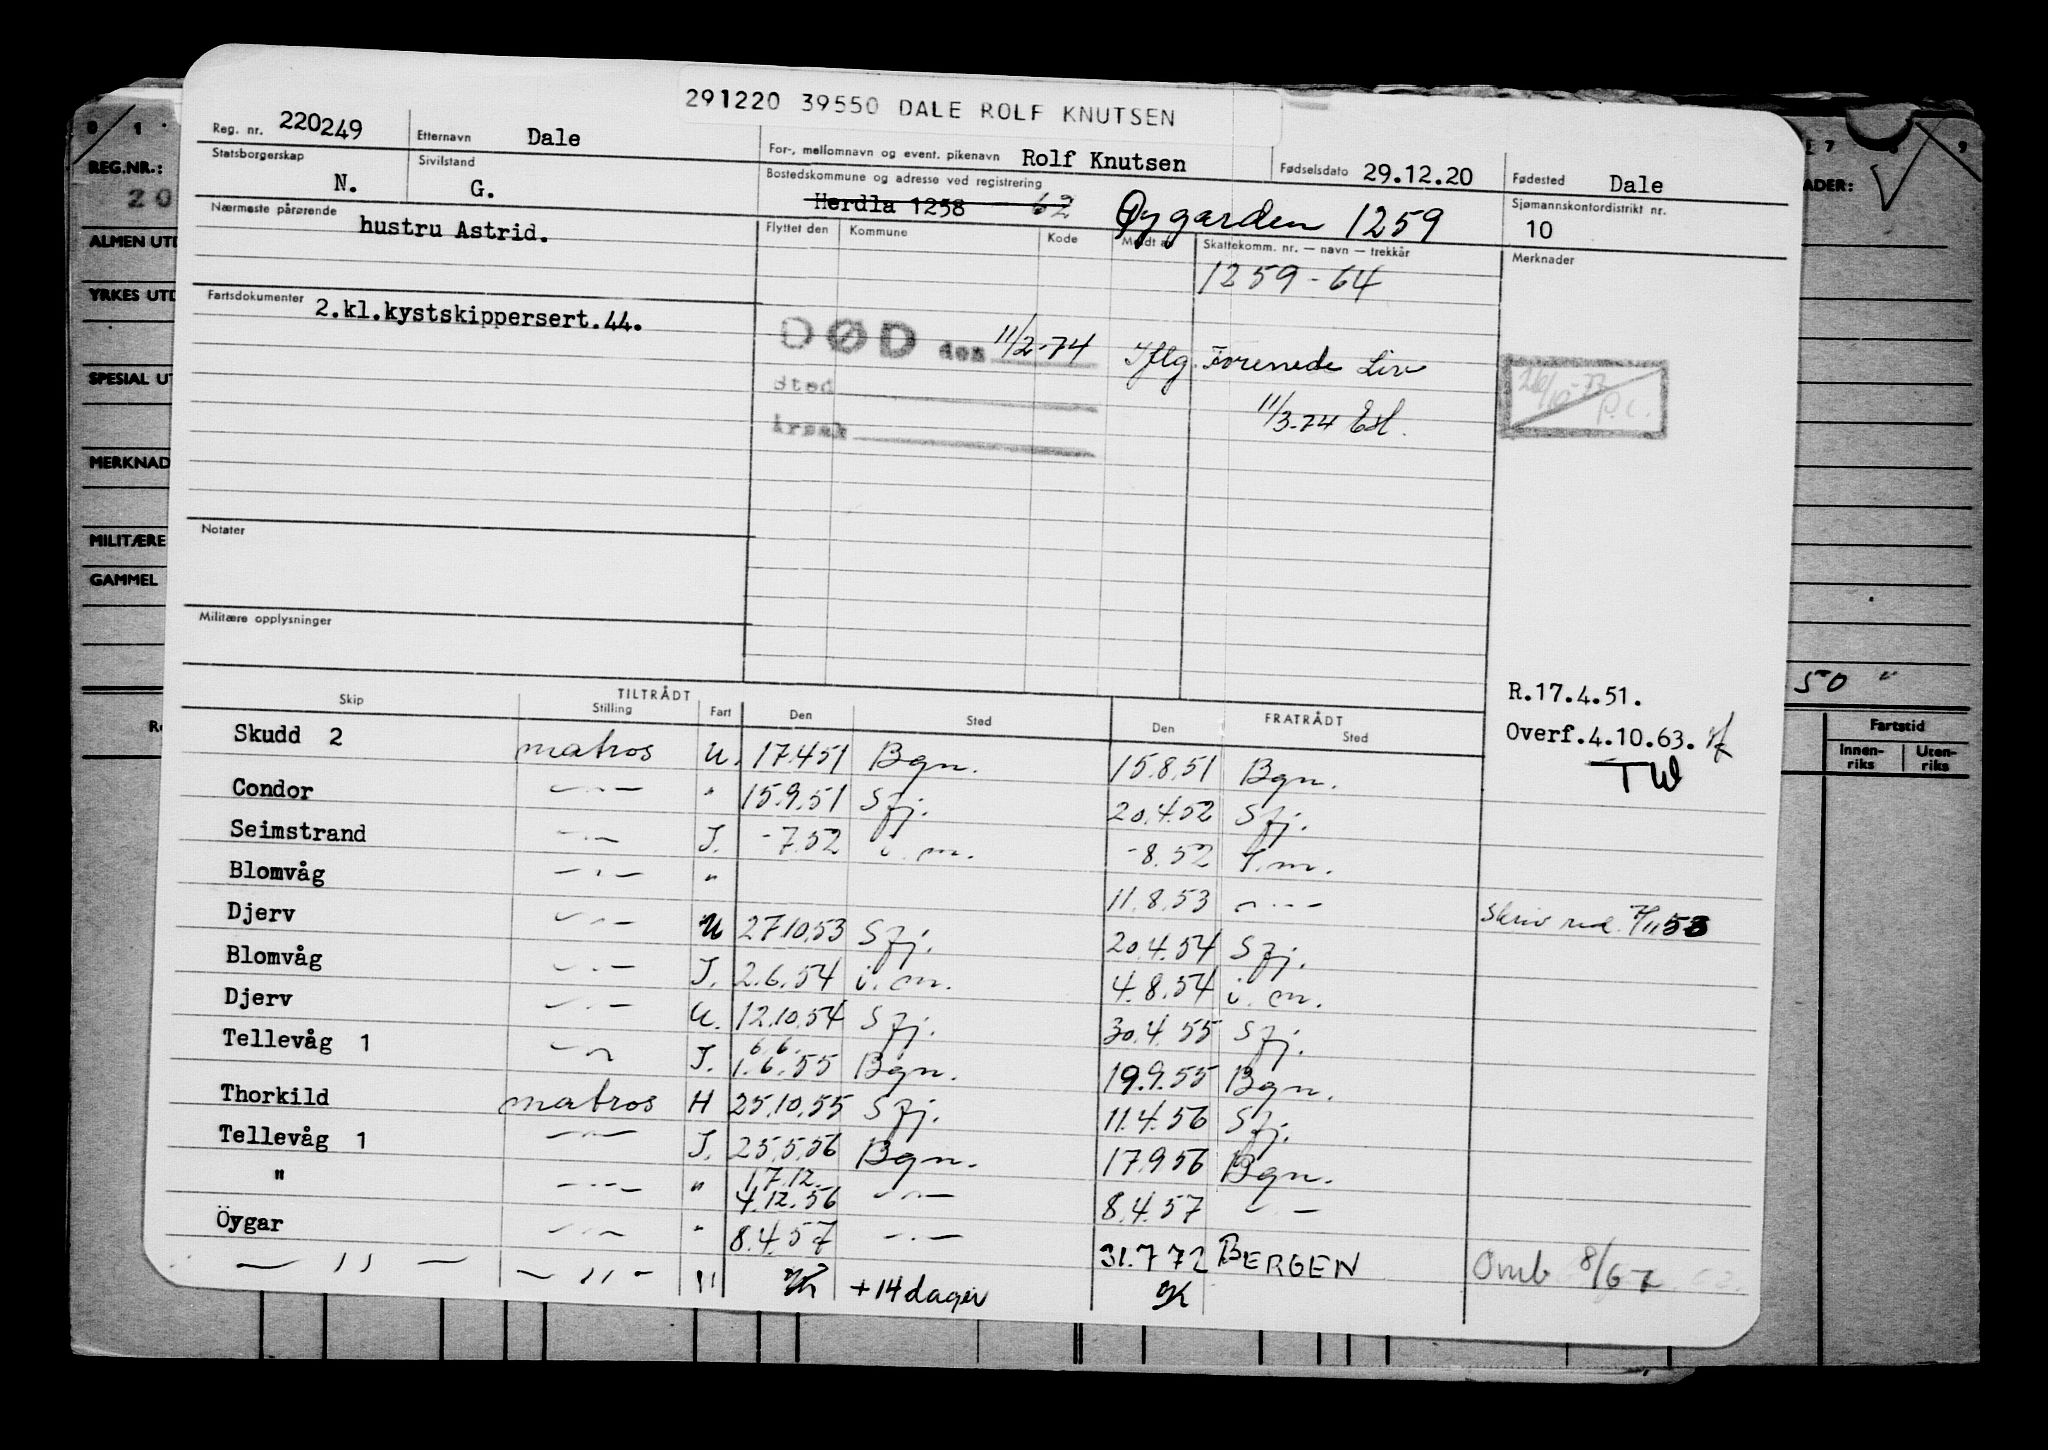 291220 39550 DALE ROLF KNUTSEN
Reg. nr. 220249 Etternavn Dale For-, mellomnavn og event. pikenavn Rolf Knutsen Fødselsdato 29.12.20 Fødested Dale
Statsborgerskap N. Sivilstand G. Bostedskommune og adresse ved registrering Herdla 1258 62 Øygarden 1259 Sjømannskontordistrikt nr. 10
Nærmeste pårørende hustru Astrid.
Flyttet den Kommune Kode Meldt Skattekomm. nr. — navn — trekkår Merknader
1259-64
Fartsdokumenter 2.kl.kystskippersert.44.
DØD den 11/2-74 Iflg. Forenede Liv
Sted
11/3-74
Årsak
26/10-73 P.C.
Notater
Militære opplysninger
R.17.4.51.
Overf.4.10.63.
TW
TILTRÅDT FRATRÅDT
Skip Stilling Fart Den Sted Den Sted
Skudd 2 matros U. 17.4.51 Bgn. 15.8.51 Bgn.
Condor — " — " 15.9.51 Sfj. 20.4.52 Sfj.
Seimstrand — " — I. -7.52 i.m. -8.52 i.m.
Blomvåg — " — " 11.8.53 — " — Skriv red. 7/11 53
Djerv — " — U 27.10.53 Sfj. 20.4.54 Sfj.
Blomvåg — " — I. 2.6.54 i.m. 4.8.54 i.m.
Djerv — " — U. 12.10.54 Sfj. 30.4.55 Sfj.
6.6.
Tellevåg 1 — " — I. 1.6.55 Bgn. 19.9.55 Bgn.
Thorkild matros H 25.10.55 Sfj. 11.4.56 Sfj.
Tellevåg 1 — " — I. 25.5.56 Bgn. 17.9.56 Bgn.
17.12.
" — " — " 4.12.56 — " — 8.4.57 — " —
Öygar — " — " 8.4.57 — " — 31.7.72 BERGEN Omb 8/67
— " — — " — " + 14 dager
REG.NR.:
20
ALMEN UTD
YRKES UTD
SPESIAL UT
MERKNAD
MILITÆRE
GAMMEL
ADER:
50 "
Fartstid
Innen-riks Uten-riks